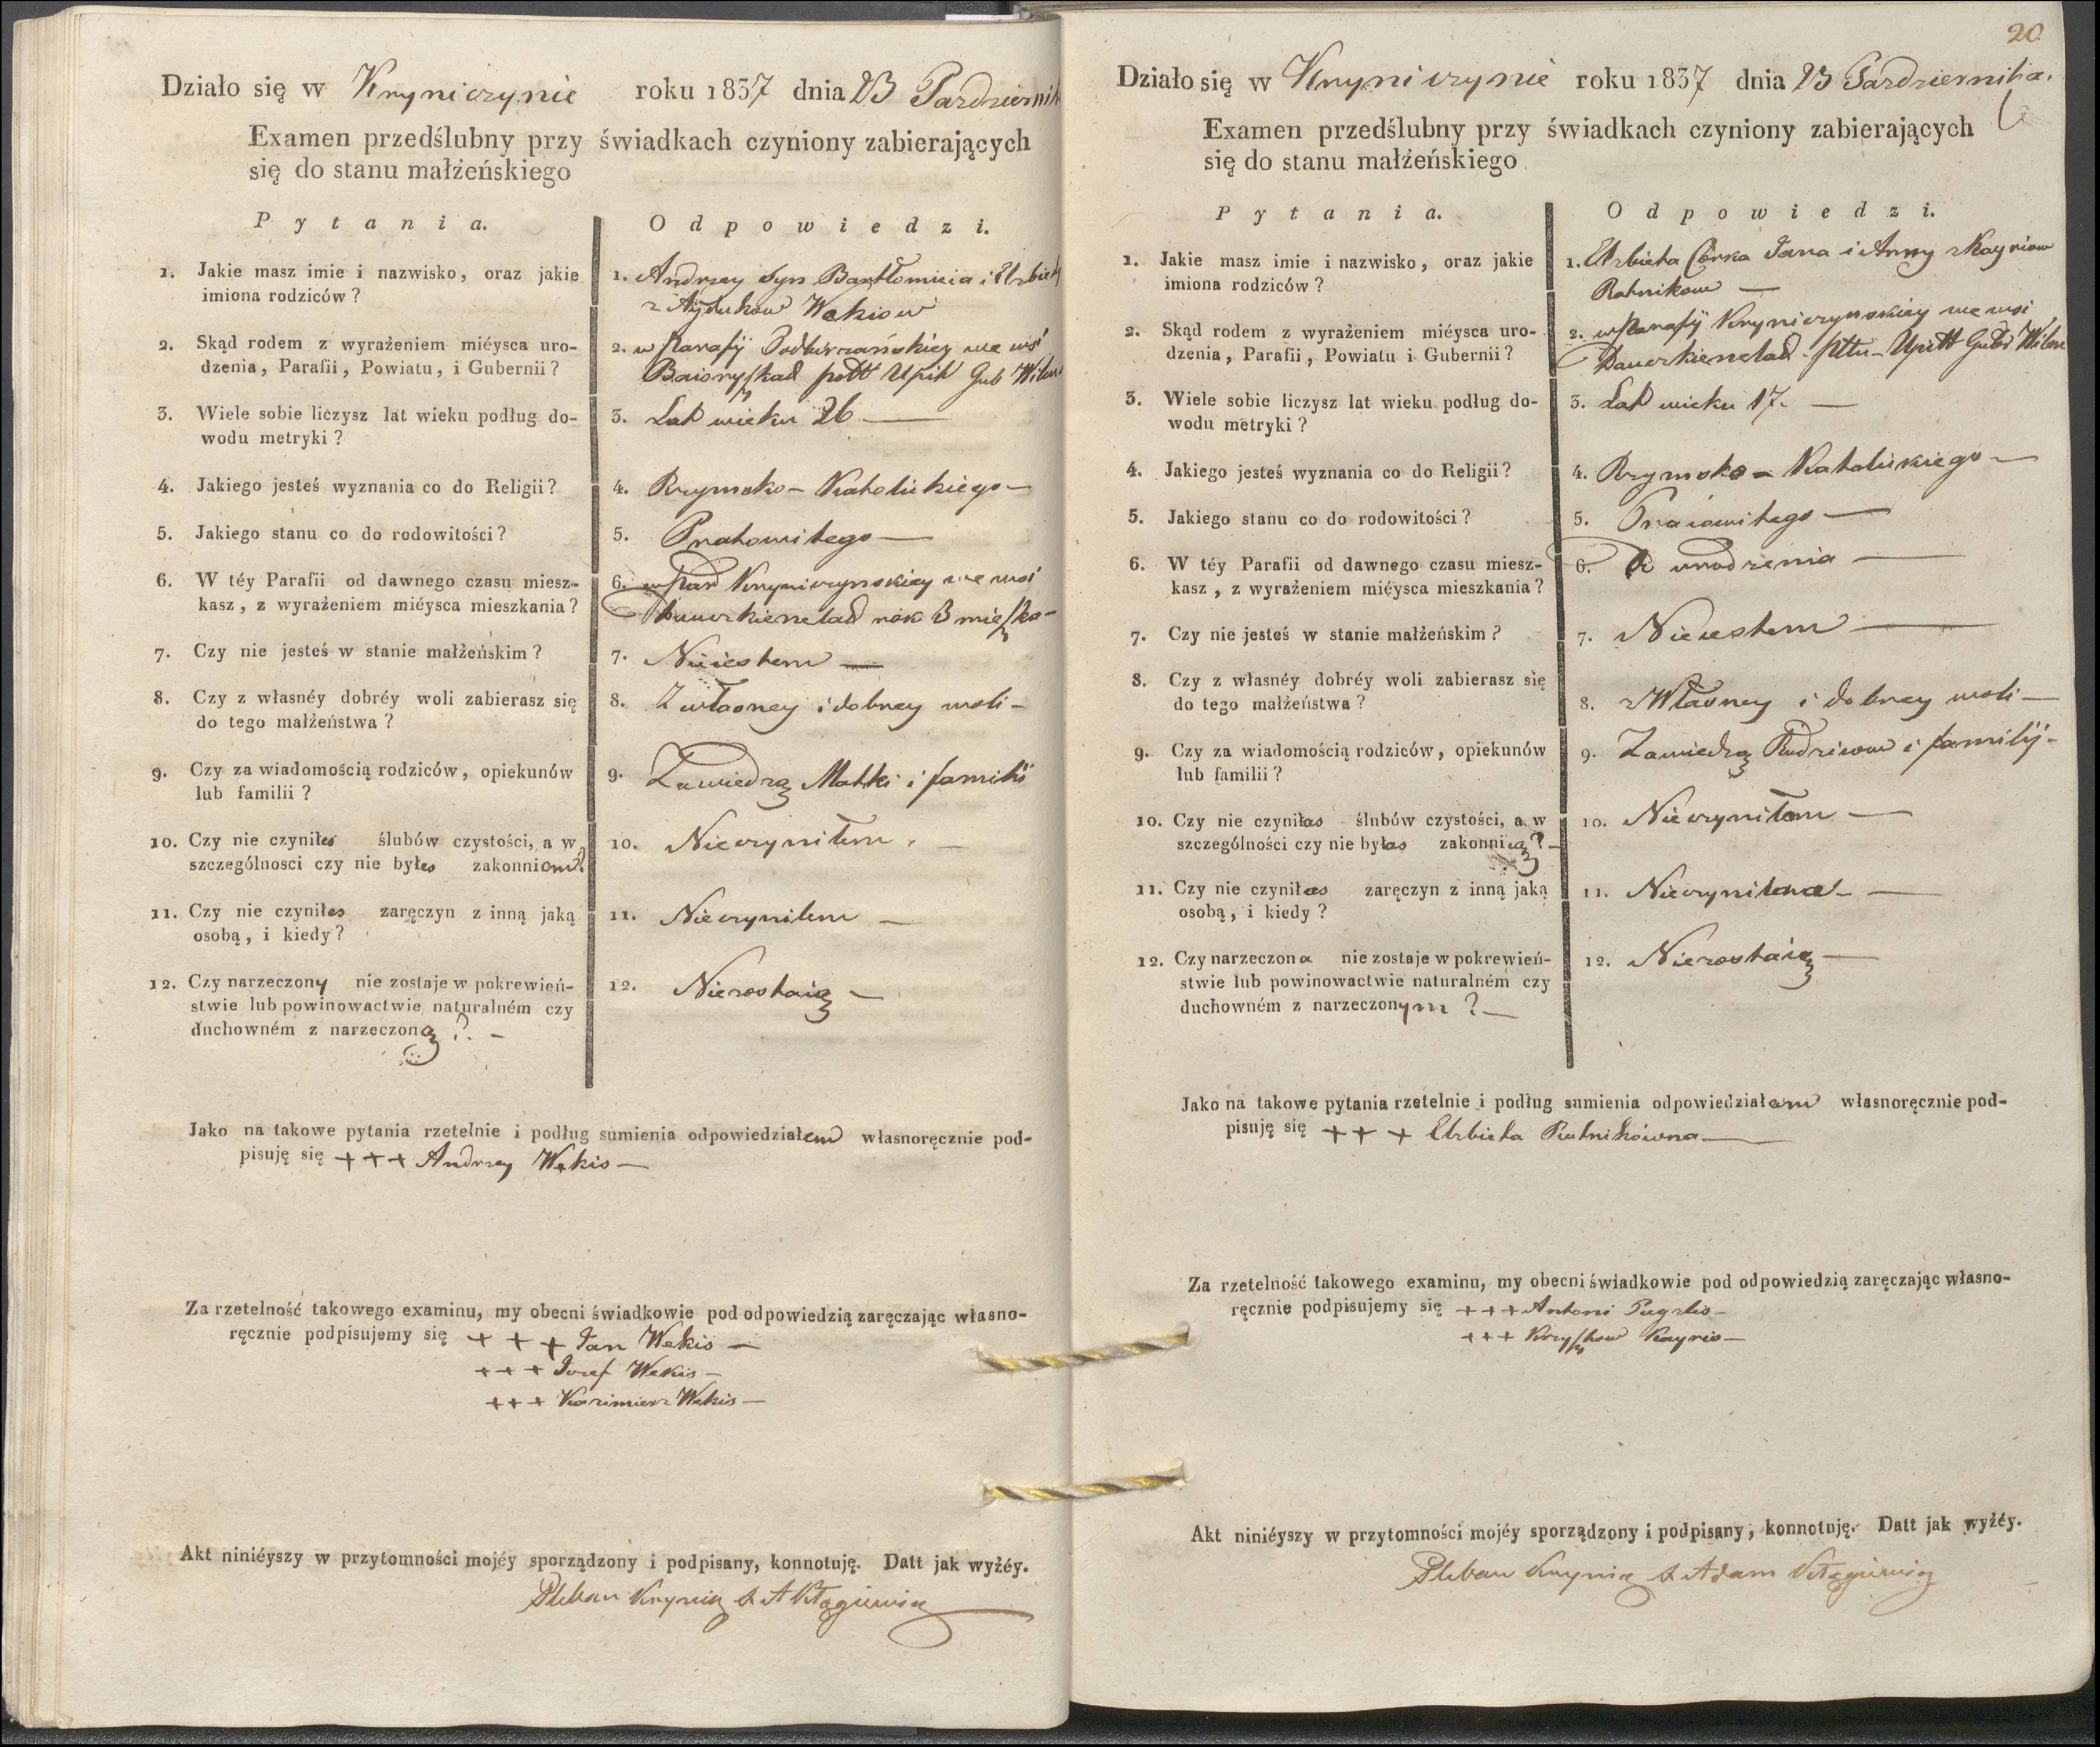 Działo się w Kryniczynie roku 1837 dnia 23 Pazdziernik
Examen przedślubny przy świadkach czyniony zabierających
się do stanu małżeńskiego
Pytania. Odpowiedzi.
1. Jakie masz imie i nazwisko, oraz jakie
imiona rodziców?
1. Andrzey Syn Bartłomieia i Elzbiety
z Wekiow
2. Skąd rodem z wyrażeniem miéysca uro-
dzenia, Parafii, Powiatu, i Gubernii?
2. w Parafij we wsi
pott Upit Gub Wilen
3. Wiele sobie liczysz lat wieku podług do-
wodu metryki?
3. Lat wieku 26 —
4. Jakiego jesteś wyznania co do Religii?
4. Rzymsko - Katolickiego —
5. Jakiego stanu co do rodowitości?
5. Pracowitego —
6. W téy Parafii od dawnego czasu miesz-
kasz, z wyrażeniem miéysca mieszkania?
6. w Par Kryniczynskiey we wsi
rok 3 mieszka -
7. Czy nie jesteś w stanie małżeńskim?
7. Nieiestem —
8. Czy z własnéy dobréy woli zabierasz się
do tego małżeństwa?
8. Z własney i dobrey woli -
9. Czy za wiadomością rodziców, opiekunów
lub familii?
9. Zawiedzą Matki i familii
10. Czy nie czyniłes ślubów czystości, a w
szczególnosci czy nie byłes zakonnicm?
10. Nieczyniłem. —
11. Czy nie czyniłes zaręczyn z inną jaką
osobą, i kiedy?
11. Nieczynilem —
12. Czy narzeczony nie zostaje w pokrewień-
stwie lub powinowactwie naturalném czy
duchowném z narzeczoną?. -
12. Niezostaię —
Jako na takowe pytania rzetelnie i podług sumienia odpowiedziałem własnoręcznie pod-
pisuję się +++ Andrzey Wekis —
Za rzetelność takowego examinu, my obecni świadkowie pod odpowiedzią zaręczając własno-
ręcznie podpisujemy się + + + Jan Wekis —
+++ Jozef Wekis —
+++ Kazimierz Wekis —
Akt niniéyszy w przytomności mojéy sporządzony i podpisany, konnotuję. Datt jak wyżéy.
Pleban Krynicz X A
20
Działo się w Kryniczynie roku 1837 dnia 23 Pazdziernika.
Examen przedślubny przy świadkach czyniony zabierających
się do stanu małżeńskiego
Pytania. Odpowiedzi.
1. Jakie masz imie i nazwisko, oraz jakie
imiona rodziców?
1. Elzbieta Córka Jana i Anny z Kayriow
Ratnikow —
2. Skąd rodem z wyrażeniem miéysca uro-
dzenia, Parafii, Powiatu i Gubernii?
2. w Parafij Kryniczynskiey we wsi
Upitt Gubr Wilen
3. Wiele sobie liczysz lat wieku podług do-
wodu metryki?
3. Lat wieku 17. —
4. Jakiego jesteś wyznania co do Religii?
4. Rzymsko - Katolickiego —
5. Jakiego stanu co do rodowitości?
5. Pracowitego —
6. W téy Parafii od dawnego czasu miesz-
kasz, z wyrażeniem miéysca mieszkania?
6. Od urodzenia —
7. Czy nie jesteś w stanie małżeńskim?
7. Nieiestem —
8. Czy z własnéy dobréy woli zabierasz się
do tego małżeństwa?
8. z Własney i dobrey woli —
9. Czy za wiadomością rodziców, opiekunów
lub familii?
9. Zawiedzą Rodzicow i familij -
10. Czy nie czyniłas ślubów czystości, a w
szczególności czy nie byłas zakonnicą? -
10. Nieczyniłam —
11. Czy nie czyniłas zaręczyn z inną jaką
osobą, i kiedy?
11. —
12. Czy narzeczona nie zostaje w pokrewień-
stwie lub powinowactwie naturalném czy
duchowném z narzeczonym? —
12. Niezostaię —
Jako na takowe pytania rzetelnie i podług sumienia odpowiedziałam własnoręcznie pod-
pisuję się + + + Elzbieta Ratnikówna —
Za rzetelność takowego examinu, my obecni świadkowie pod odpowiedzią zaręczając własno-
ręcznie podpisujemy się +++ Antoni
+++ Kayris —
Akt niniéyszy w przytomności mojéy sporządzony i podpisany, konnotuję. Datt jak wyżéy.
Pleban Krynicz X Adam